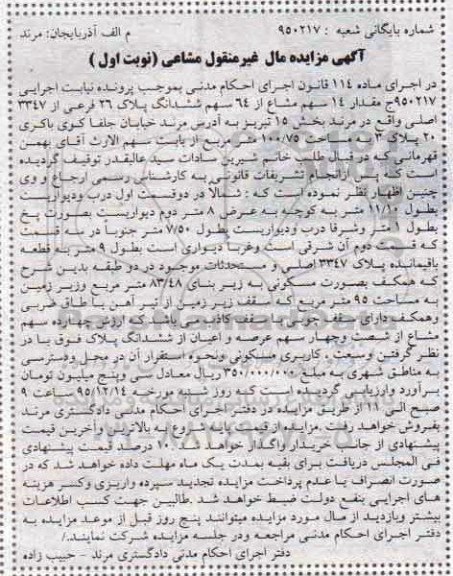 شماره بایگانی شعبه : ۹۵۰۲۱۷ م الف آذربایجان: مرند
آگهی مزایده مال غیرمنقول مشاعی (نوبت اول )
در اجرای ماده ۱۱۴ قانون اجرای احکام مدنی بموجب پرونده نیابت اجرایی
۹۵۰۲۱۷ج مقدار ۱۴ سهم مشاع از ۶۴ سهم ششدانگ پلاک ۲۶ فرعی از ۳۳۴۷
اصلی واقع در مرند بخش ۱۵ تبریز به آدرس مرند خیابان جلفا کوی باکری
۲۰ پلاک مساحت ۱۰۰/۷۵ متر مربع از بابت سهم الارث آقای بهمن
قهرمانی که در قبال طلب خانم شیرین سادات سید عالیقدر توقیف گردیده
است که پس ازانجام تشریفات قانونی به کارشناس رسمی ارجاع و وی
چنین اظهار نظر نموده است که : شمالا در دوقسمت اول درب ودیواریست
بطول ۱۱/۱۰ متر به کوچه به عرض ۸ متر دوم دیواریست بصورت پخ
بطول ۱ متر وشرقا درب ودیواریست بطول ۷/۵۰ متر جنوبا در سه قسمت
که قسمت دوم آن شرقی است وغربا دیواری است بطول ۹ متر به قطعه
باقیمانده پلاک ۳۳۴۷ اصلی و مستحدثات موجود در دو طبقه بدین شرح
که همکف بصورت مسکونی به زیر بنای ۸۳/۴۸ متر مربع وزیر زمین
به مساحت ۹۵ متر مربع که سقف زیر زمین از تیر آهن با طاق ضربی
وهمکف دارای سقف چوبی با سقف کاذب می باشد که ارزش چهارده سهم
مشاع از شصت وچهار سهم عرصه و اعیان از ششدانگ پلاک فوق با در
نظر گرفتن وسعت ، کاربری مسکونی ونحوه استقرار آن در محل ودسترسی
به مناطق شهری به مبلغ ۳۵۰/۰۰۰/۰۰۰ ریال معادل سی وپنج میلیون تومان
برآورد وارزیابی گردیده است که روز شنبه مورخه ۹۵/۱۲/۱۴ ساعت ۹
صبح الی ۱۱ از طریق مزایده در دفتر اجرای احکام مدنی دادگستری مرند
بفروش خواهد رفت .مزایده از قیمت شروع به بالاترین وآخرین قیمت
پیشنهادی از جانب خریدار واگذار خواهد شد. ۱۰ درصد قیمت پیشنهادی
فی المجلس دریافت برای بقیه بمدت یک ماه مهلت داده خواهد شد که در
صورت انصراف یا عدم پرداخت مزایده تجدید سپرده واریزی وکسر هزینه
های اجرایی بنفع دولت ضبط خواهد شد .طالبین جهت کسب اطلاعات
بیشتر وبازدید از مال مورد مزایده میتوانند پنج روز قبل از موعد مزایده به
دفتر اجرای احکام مدنی مراجعه ودر جلسه مزایده شرکت نمایند./
دفتر اجرای احکام مدنی دادگستری مرند - حبیب زاده